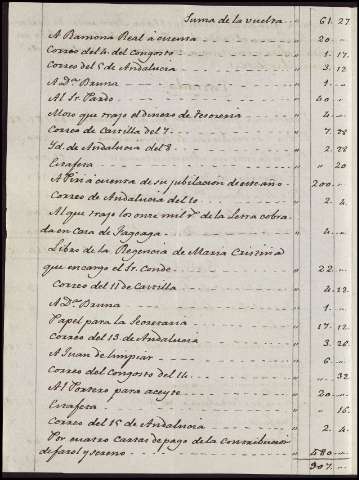 Suma de la vuelta - - " 61. 27
A Ramona Real á cuenta - - " 20. "
Correo del 4. del Congosto - - " 1. 17.
Correo del 5 de Andalucia - - " 3. 12
A Dª Bruna - - " 1. "
Al Sr. Pardo - - " 40. "
Mozo que trajo el dinero de Tesoreria - - " 4. "
Correo de Castilla del 7 - - " 7. 28
Yd. de Andalucia del 8 - - " 2. 28
Estafeta - - " " 20
A Piri á cuenta de su jubilacion de este año - " 200. "
Correo de Andalucia del 10 - - " 2. 4.
Al que trajo los once mil rs. de la Letra cobra-
da en Casa de Fagoaga - - " 4. "
Libro de la Regencia de Maria Cristina
que encargo el Sr. Conde - - " 22. "
Correo del 11 de Castilla - - " 4. 12
A Dª Bruna - - " 1. "
Papel para la Secretaria - - " 17. 12
Correo del 13 de Andalucia - - " 3. 26.
A Juan de limpiar - - " 6. "
Correo del Congosto del 14 - - " " 32
Al Portero para aceyte - - " 20. "
Estafeta - - " " 16.
Correo del 15 de Andalucia - - " 2. 4.
Por cuatro Cartas de pago de la Contribucion
de farol y sereno - - " 480. "
907. "